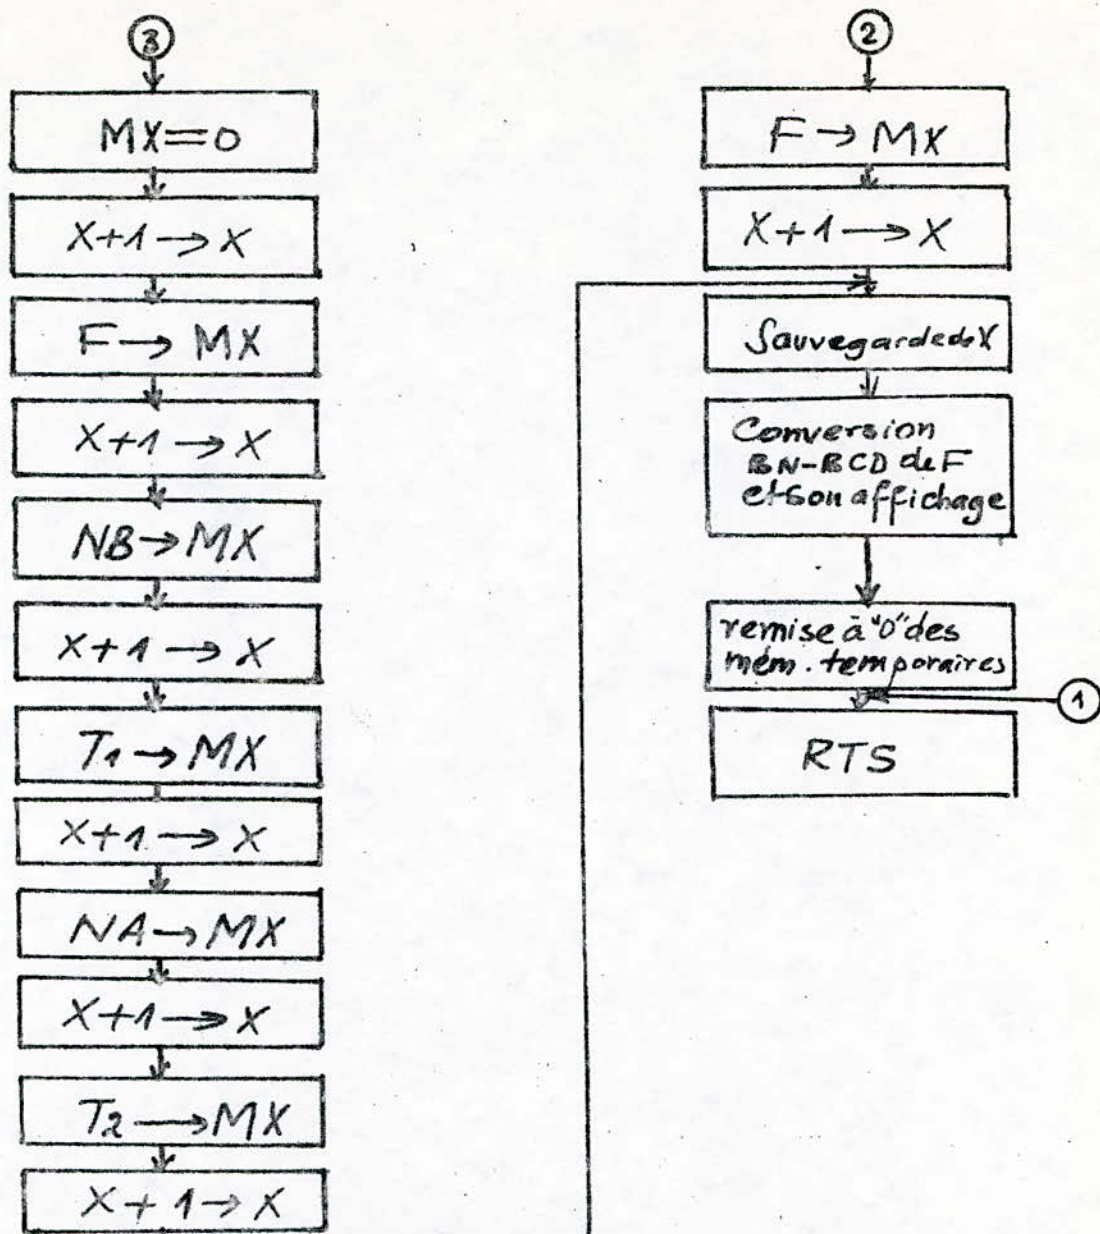 3
MX=0
X+1→X
F→MX
X+1→X
NB→MX
X+1→X
T1→MX
X+1→X
NA→MX
X+1→X
T2→MX
X+1→X
2
F→MX
X+1→X
Sauvegarde de X
Conversion
BN-BCD de F
et son affichage
remise à "0" des
mém. temporaires
1
RTS